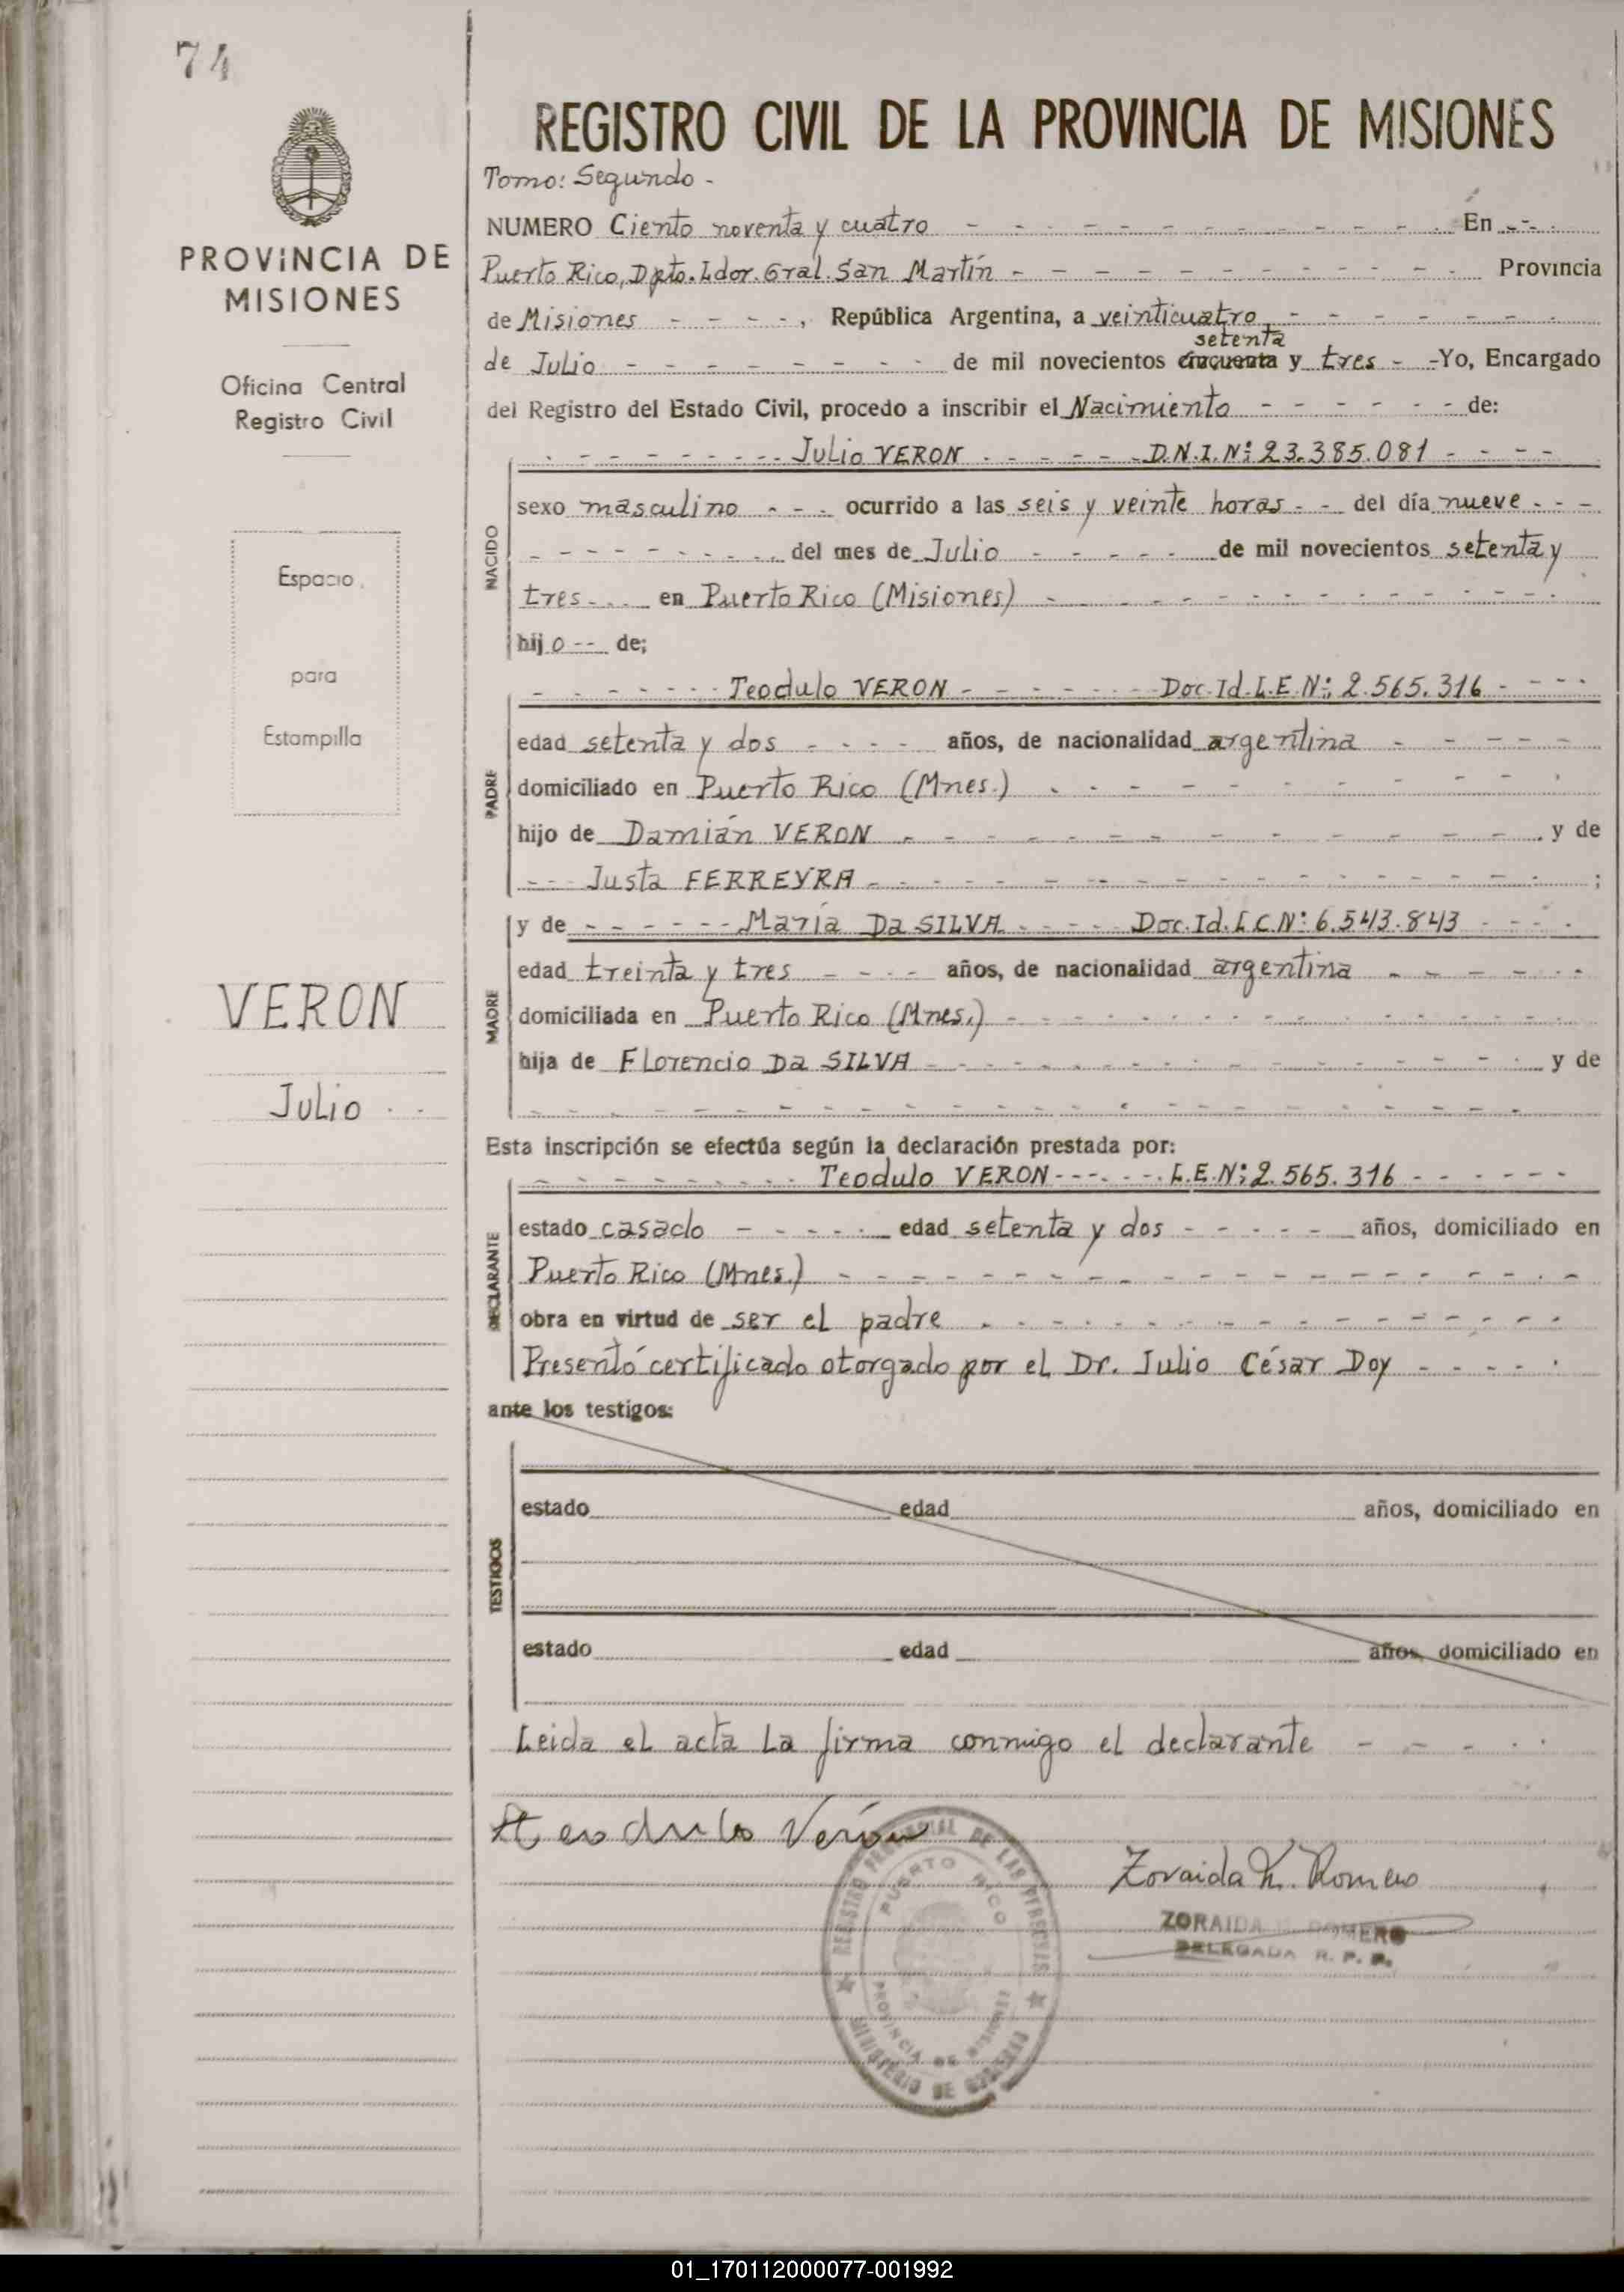 74
PROVINCIA DE
MISIONES
Oficina Central
Registro Civil
Espacio
para
Estampilla
VERON
Julio
REGISTRO CIVIL DE LA PROVINCIA DE MISIONES
Tomo: Segundo -
NUMERO Ciento noventa y cuatro En
Puerto Rico, Dpto. Ldor. Gral. San Martín Provincia
de Misiones, República Argentina, a veinticuatro
setenta
de Julio de mil novecientos cincuenta y tres - Yo, Encargado
del Registro del Estado Civil, procedo a inscribir el Nacimiento de:
Julio VERON D.N.I. Nº: 23.385.081
NACIDO
sexo masculino ocurrido a las seis y veinte horas del día nueve
del mes de Julio de mil novecientos setenta y
tres en Puerto Rico (Misiones)
hijo de;
Teodulo VERON Doc. Id. L.E. Nº: 2.565.316
PADRE
edad setenta y dos años, de nacionalidad argentina
domiciliado en Puerto Rico (Mnes.)
hijo de Damián VERON y de
Justa FERREYRA ;
MADRE
y de María Da SILVA Doc. Id. L.C. Nº: 6.543.843
edad treinta y tres años, de nacionalidad argentina
domiciliada en Puerto Rico (Mnes.)
hija de Florencio Da SILVA y de
Esta inscripción se efectúa según la declaración prestada por:
Teodulo VERON L.E. Nº: 2.565.316
DECLARANTE
estado casado edad setenta y dos años, domiciliado en
Puerto Rico (Mnes.)
obra en virtud de ser el padre
Presentó certificado otorgado por el Dr. Julio César Doy
ante los testigos:
TESTIGOS
estado edad años, domiciliado en
estado edad años, domiciliado en
Leida el acta la firma conmigo el declarante
Teodulo Verón
REGISTRO PROVINCIAL DE LAS PERSONAS
PUERTO RICO
PROVINCIA DE MISIONES
MINISTERIO DE GOBIERNO
Zoraida Romero
ZORAIDA ROMERO
DELEGADA R. P. P.
01_170112000077-001992